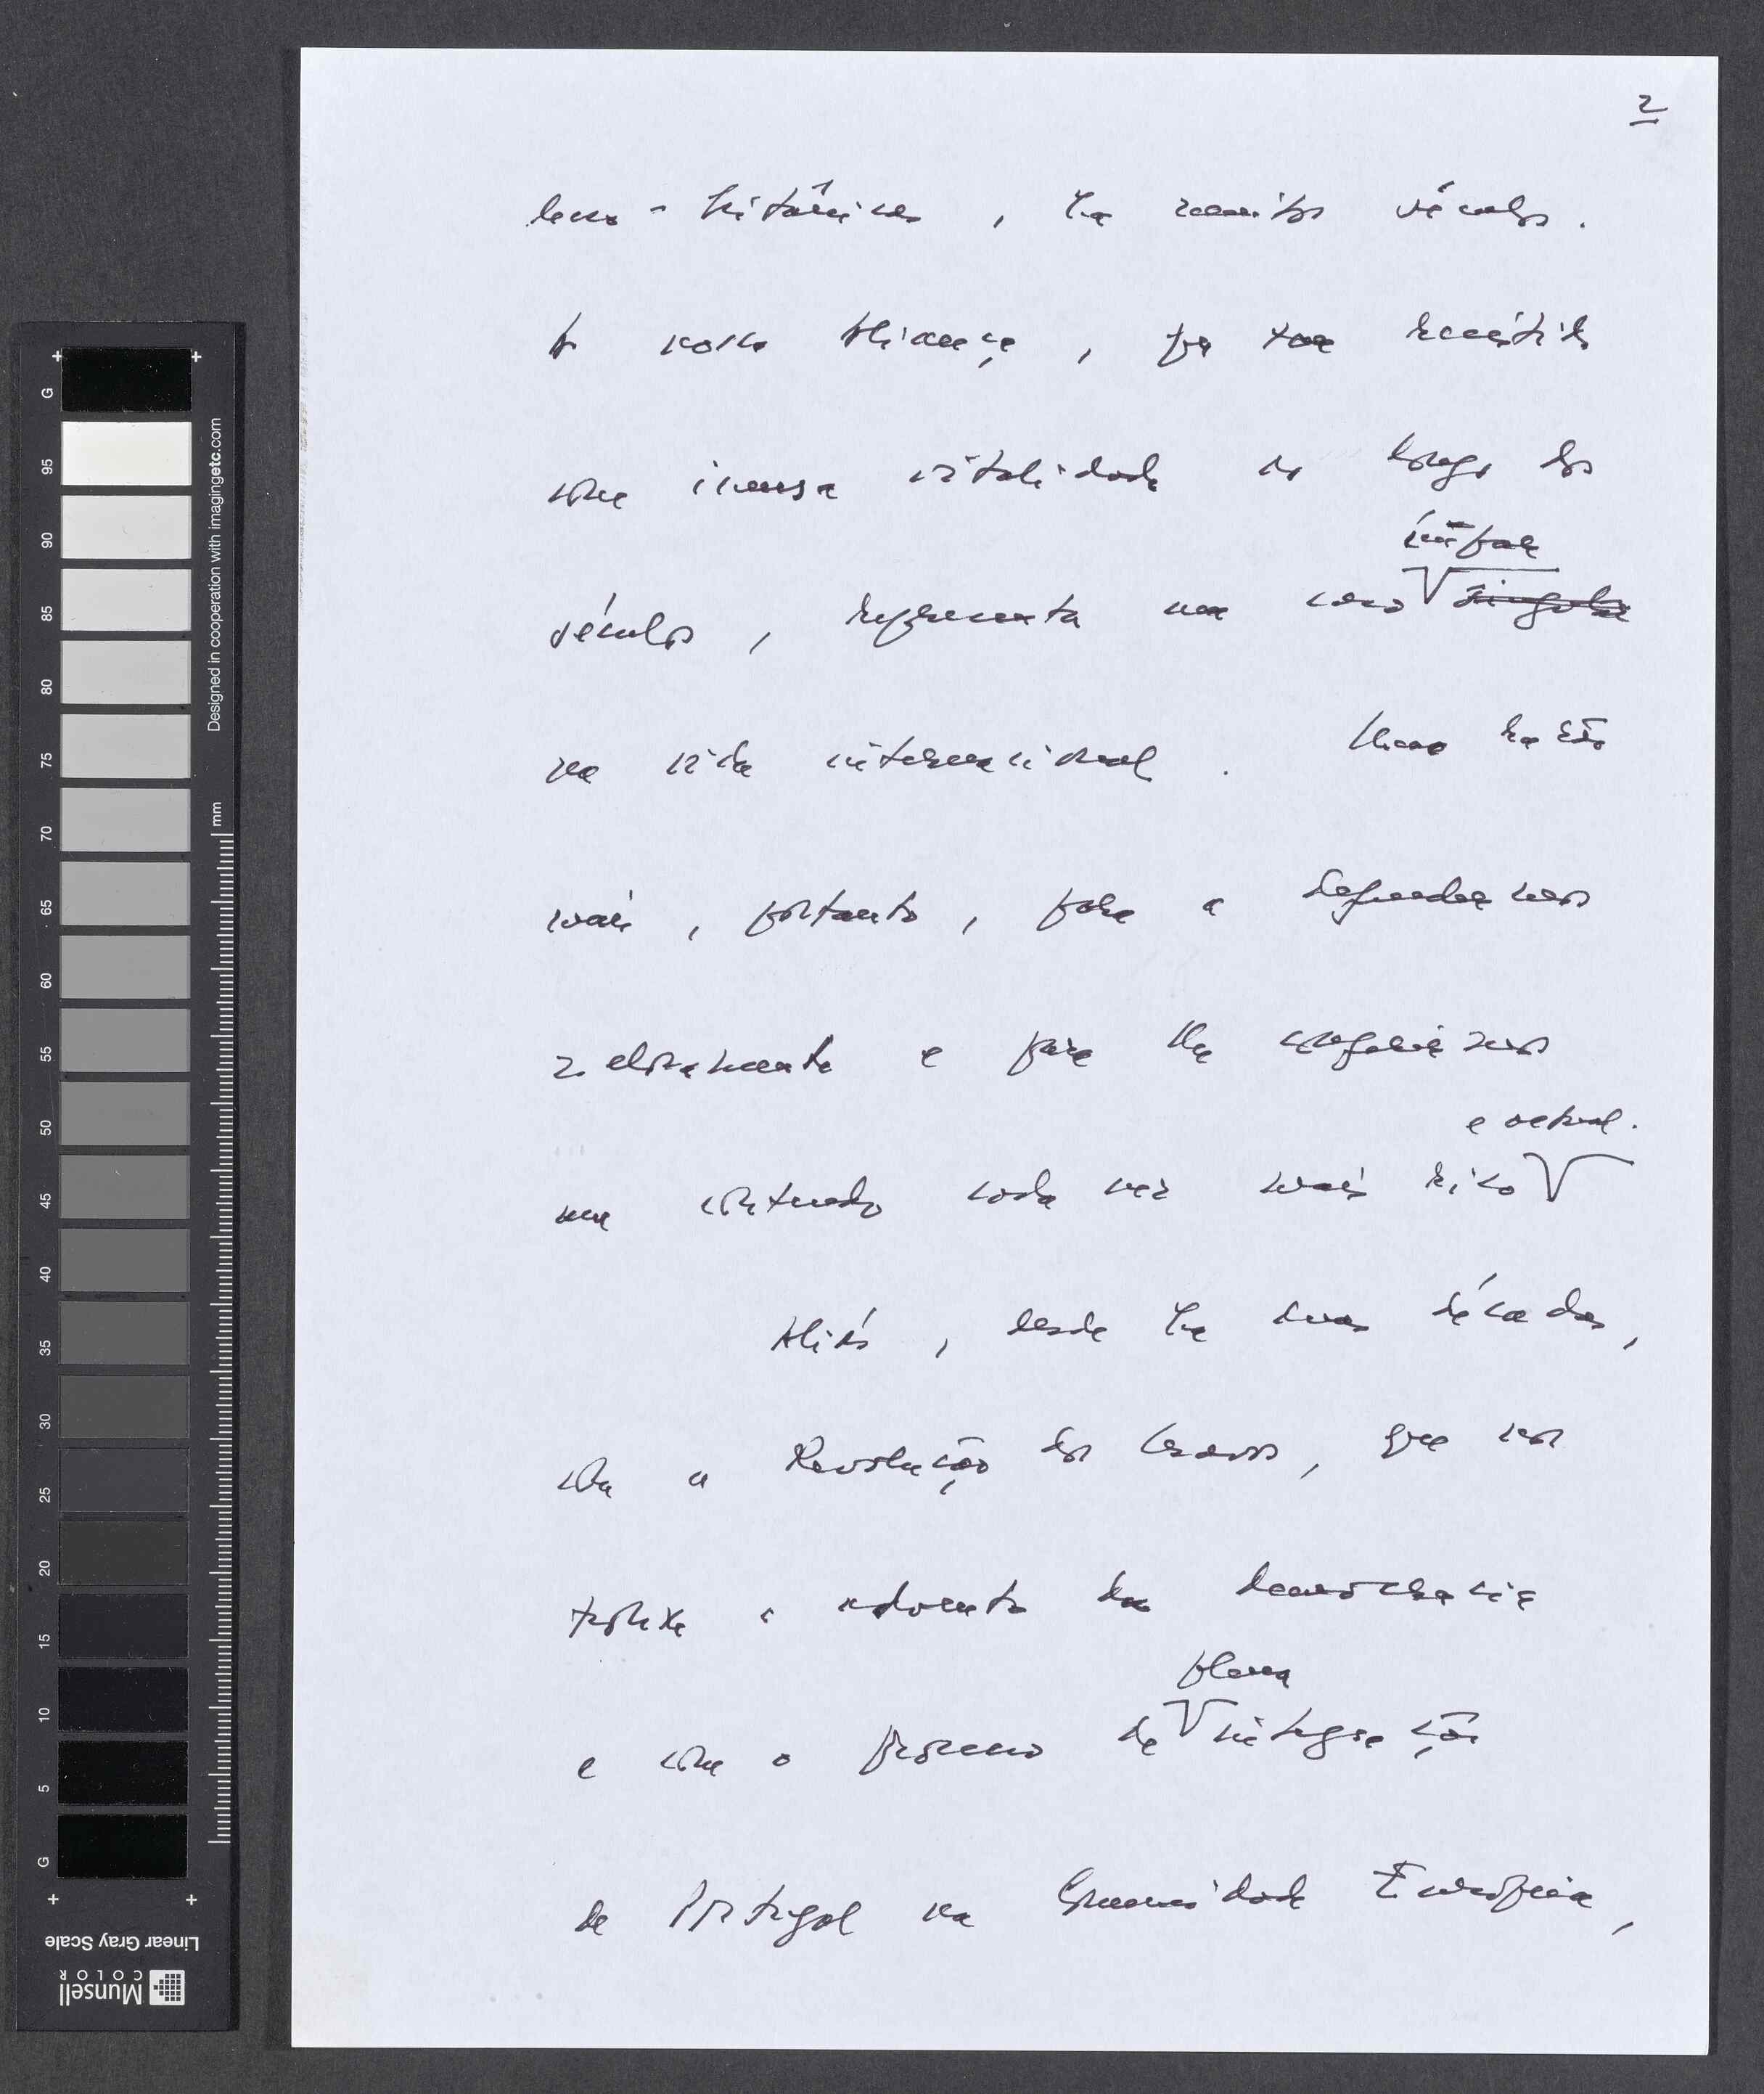 2
luso-britânicas, há muitos séculos.
A nossa Aliança, que tem resistido
com imensa vitalidade ao longo dos
ímpar
séculos, representa um caso singular
na vida internacional. Uma razão
mais, portanto, para a defendermos
zelosamente e para lhe conferirmos
um conteúdo cada vez mais rico
e actual.
Aliás, desde há duas décadas,
com a Revolução dos Cravos, que nos
trouxe o advento da democracia
plena
e com o processo de integração
de Portugal na Comunidade Europeia,
G
95
90
85
80
75
70
65
60
55
50
45
40
35
30
25
20
15
10
5
G
mm
Designed in cooperation with imagingetc.com
Linear Gray Scale
Munsell
COLOR